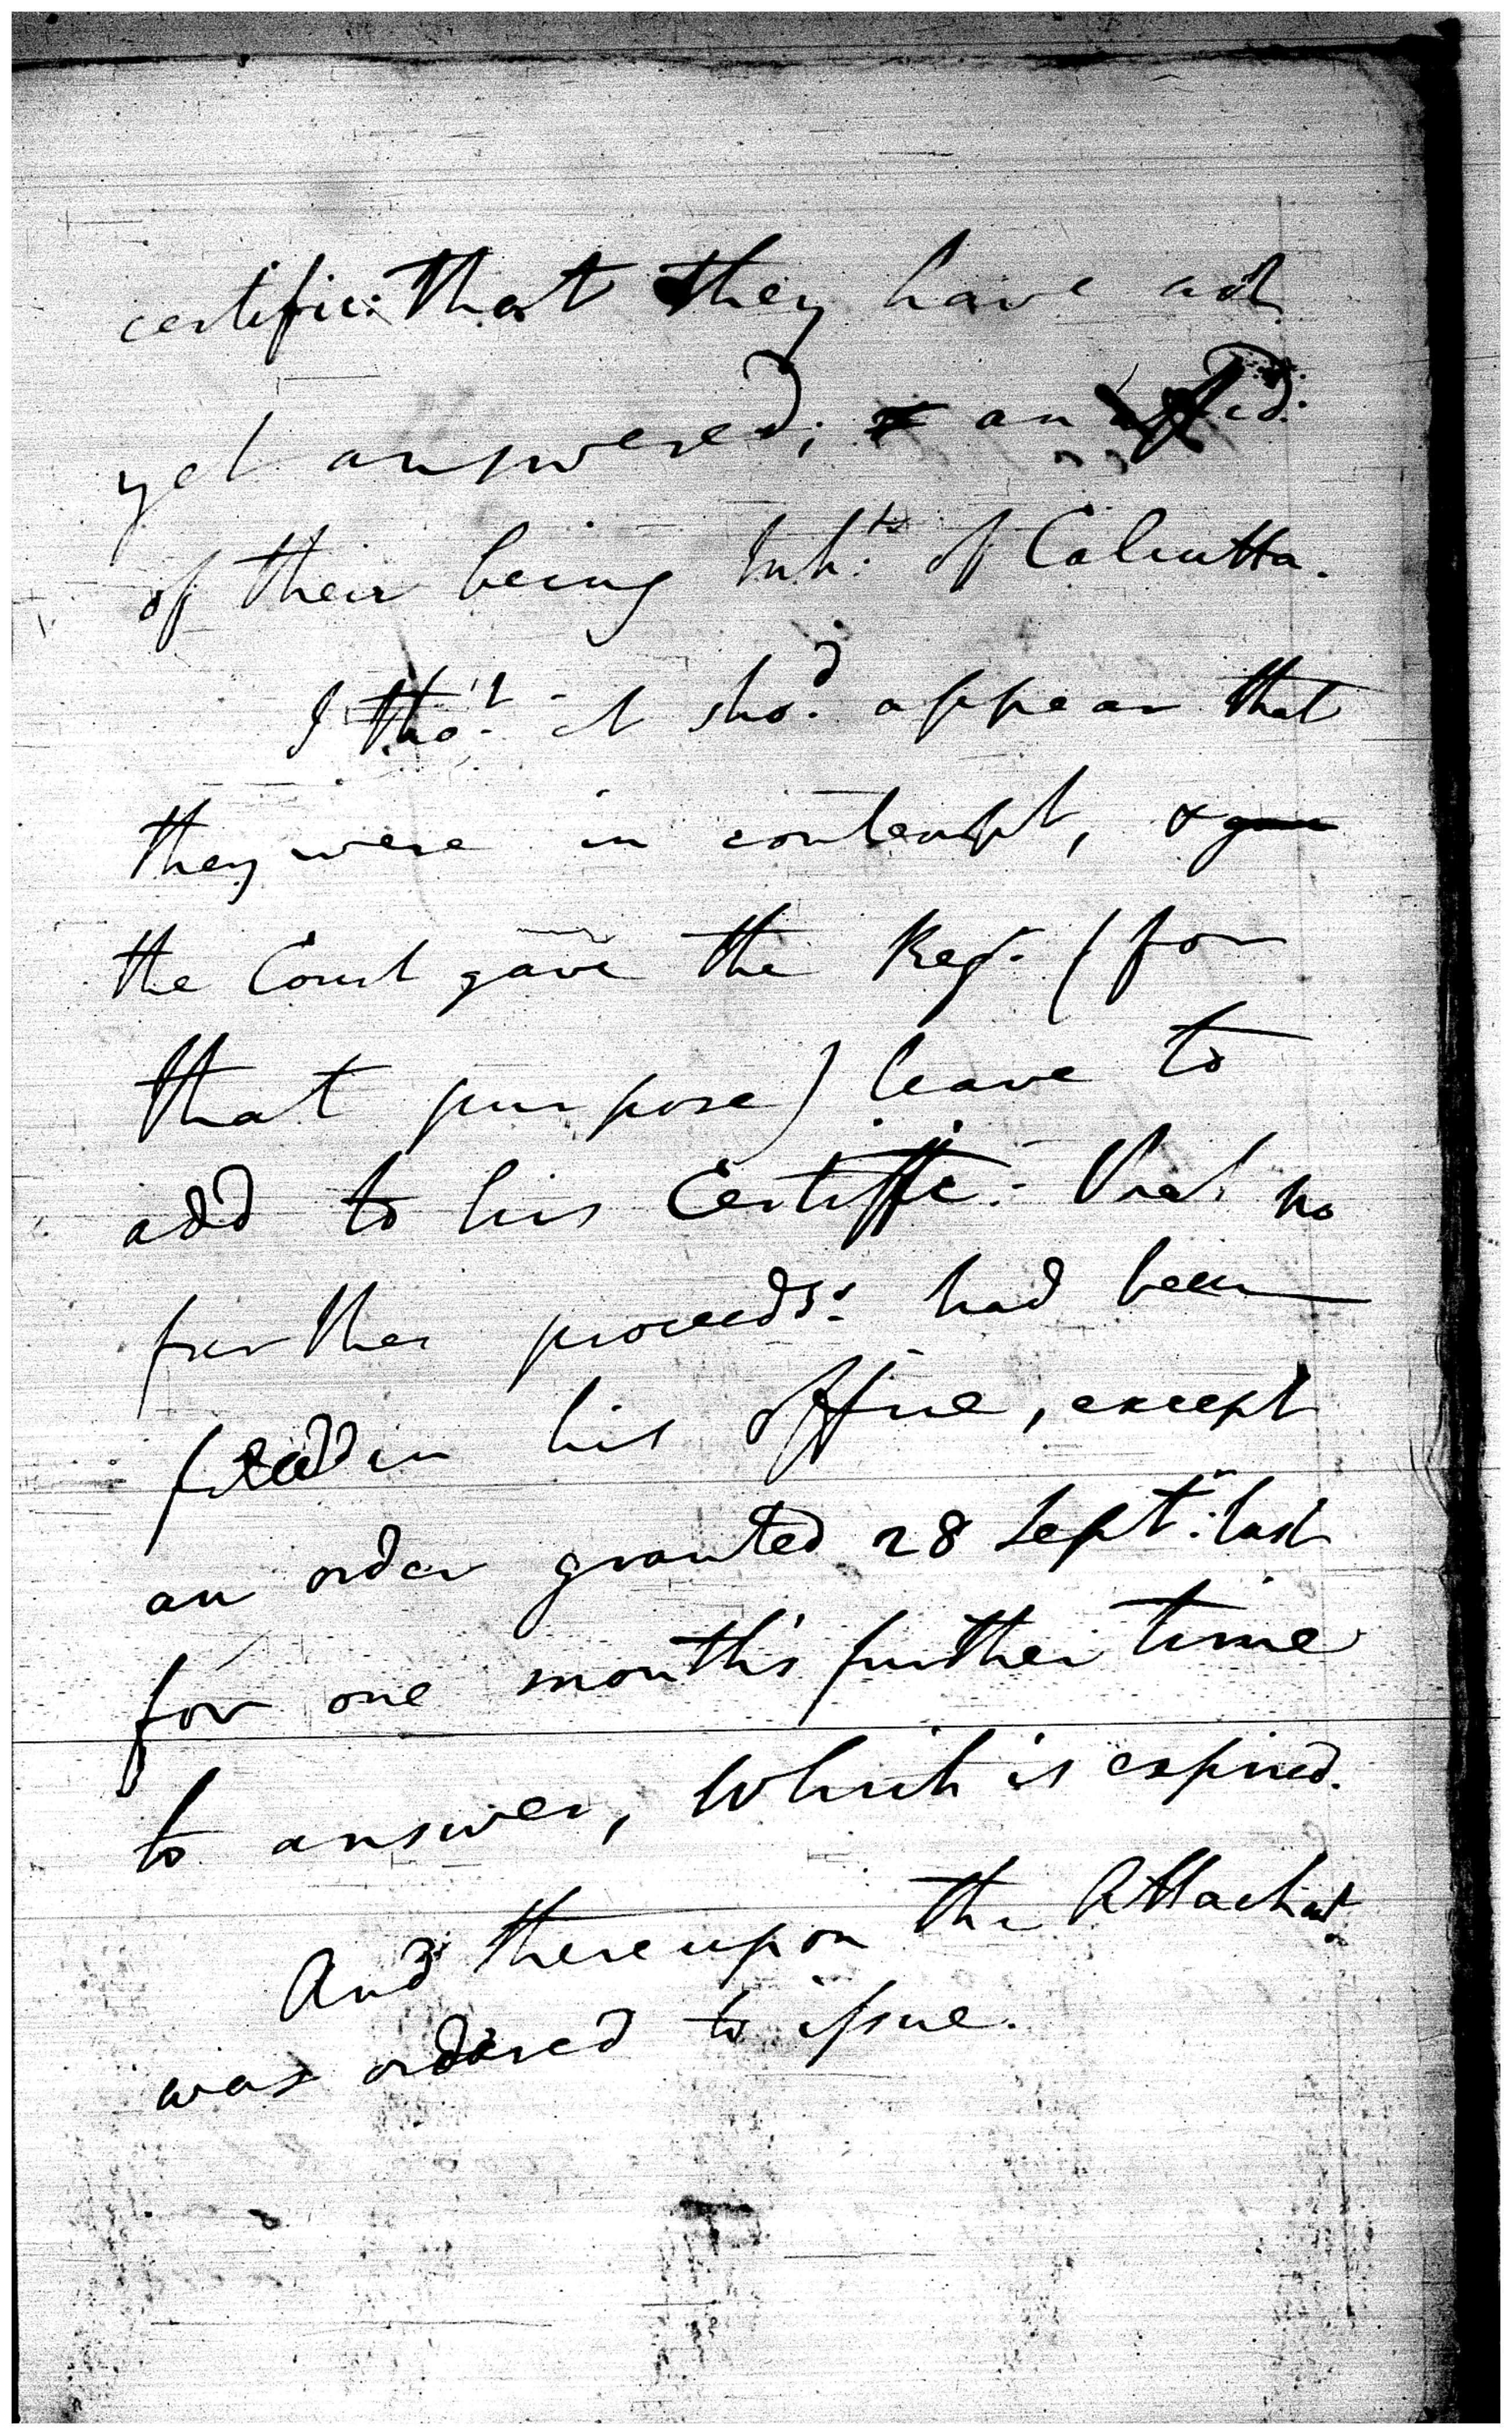 certific: that they have not
yet answered; an affid:
of their being Inh:ts of Calcutta.
I tho:t it sho:d appear that
they were in contempt, & gave
the Court gave the Reg:r (for
that purpose) leave to
add to his Certiffte: that no
further proceeds: had been
filed in his office, except
an order granted 28 Sept:r last
for one month's further time
to answer, which is expired.
And thereupon the Attachmt
was ordered to issue.